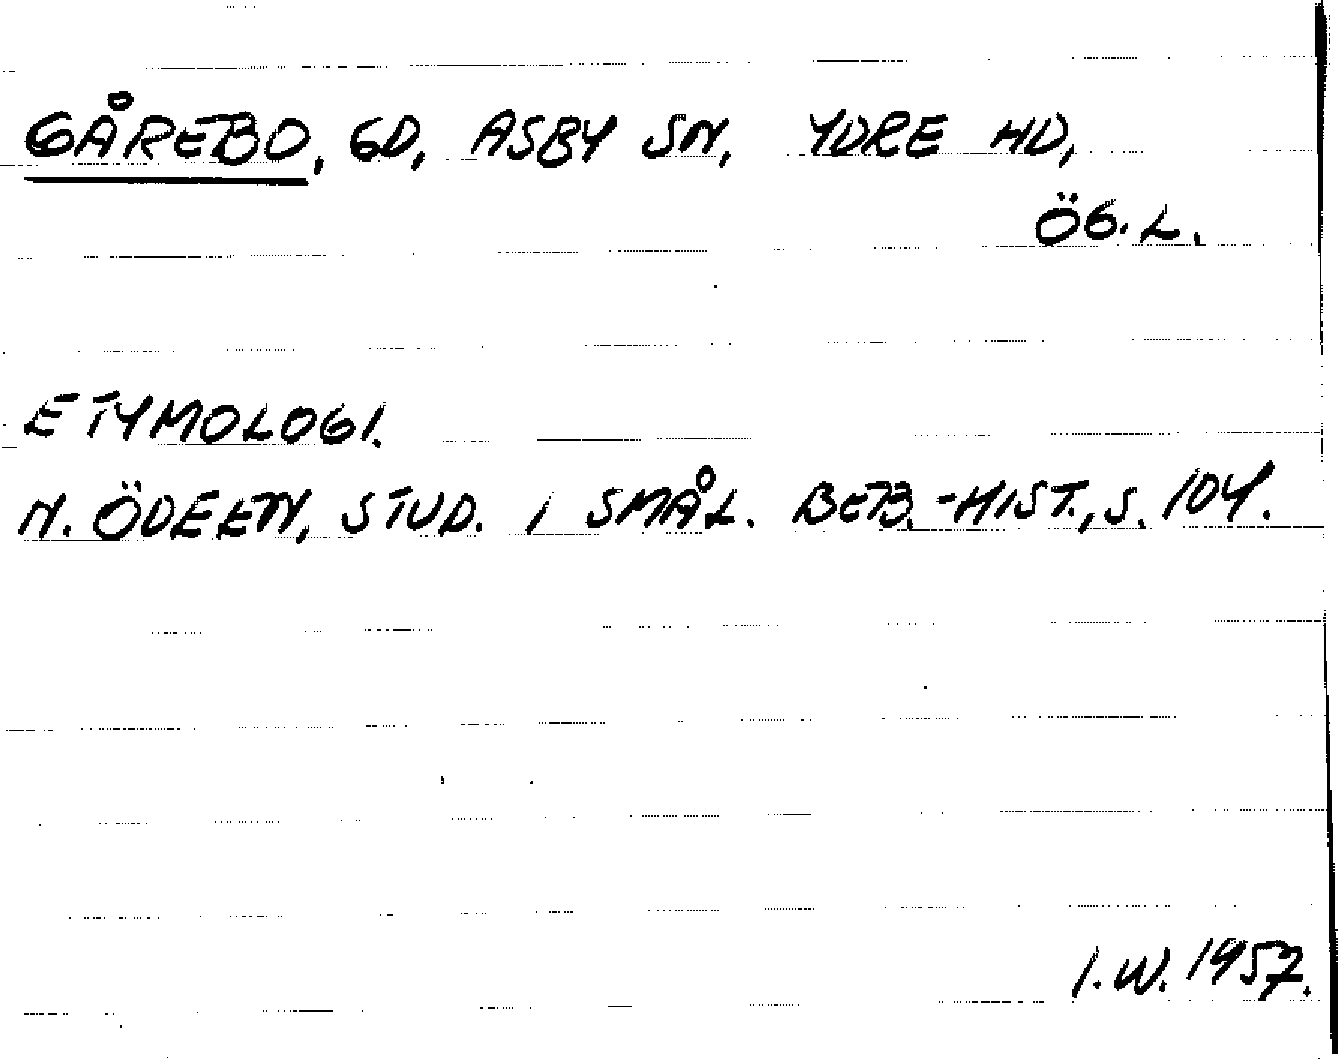 GÅREBO, GD, ASBY SN, YDRE HD,
ÖG.L.
ETYMOLOGI.
N. ÖDEEN, STUD. I SMÅL. BEB.-HIST., S. 104.
I.W. 1957.